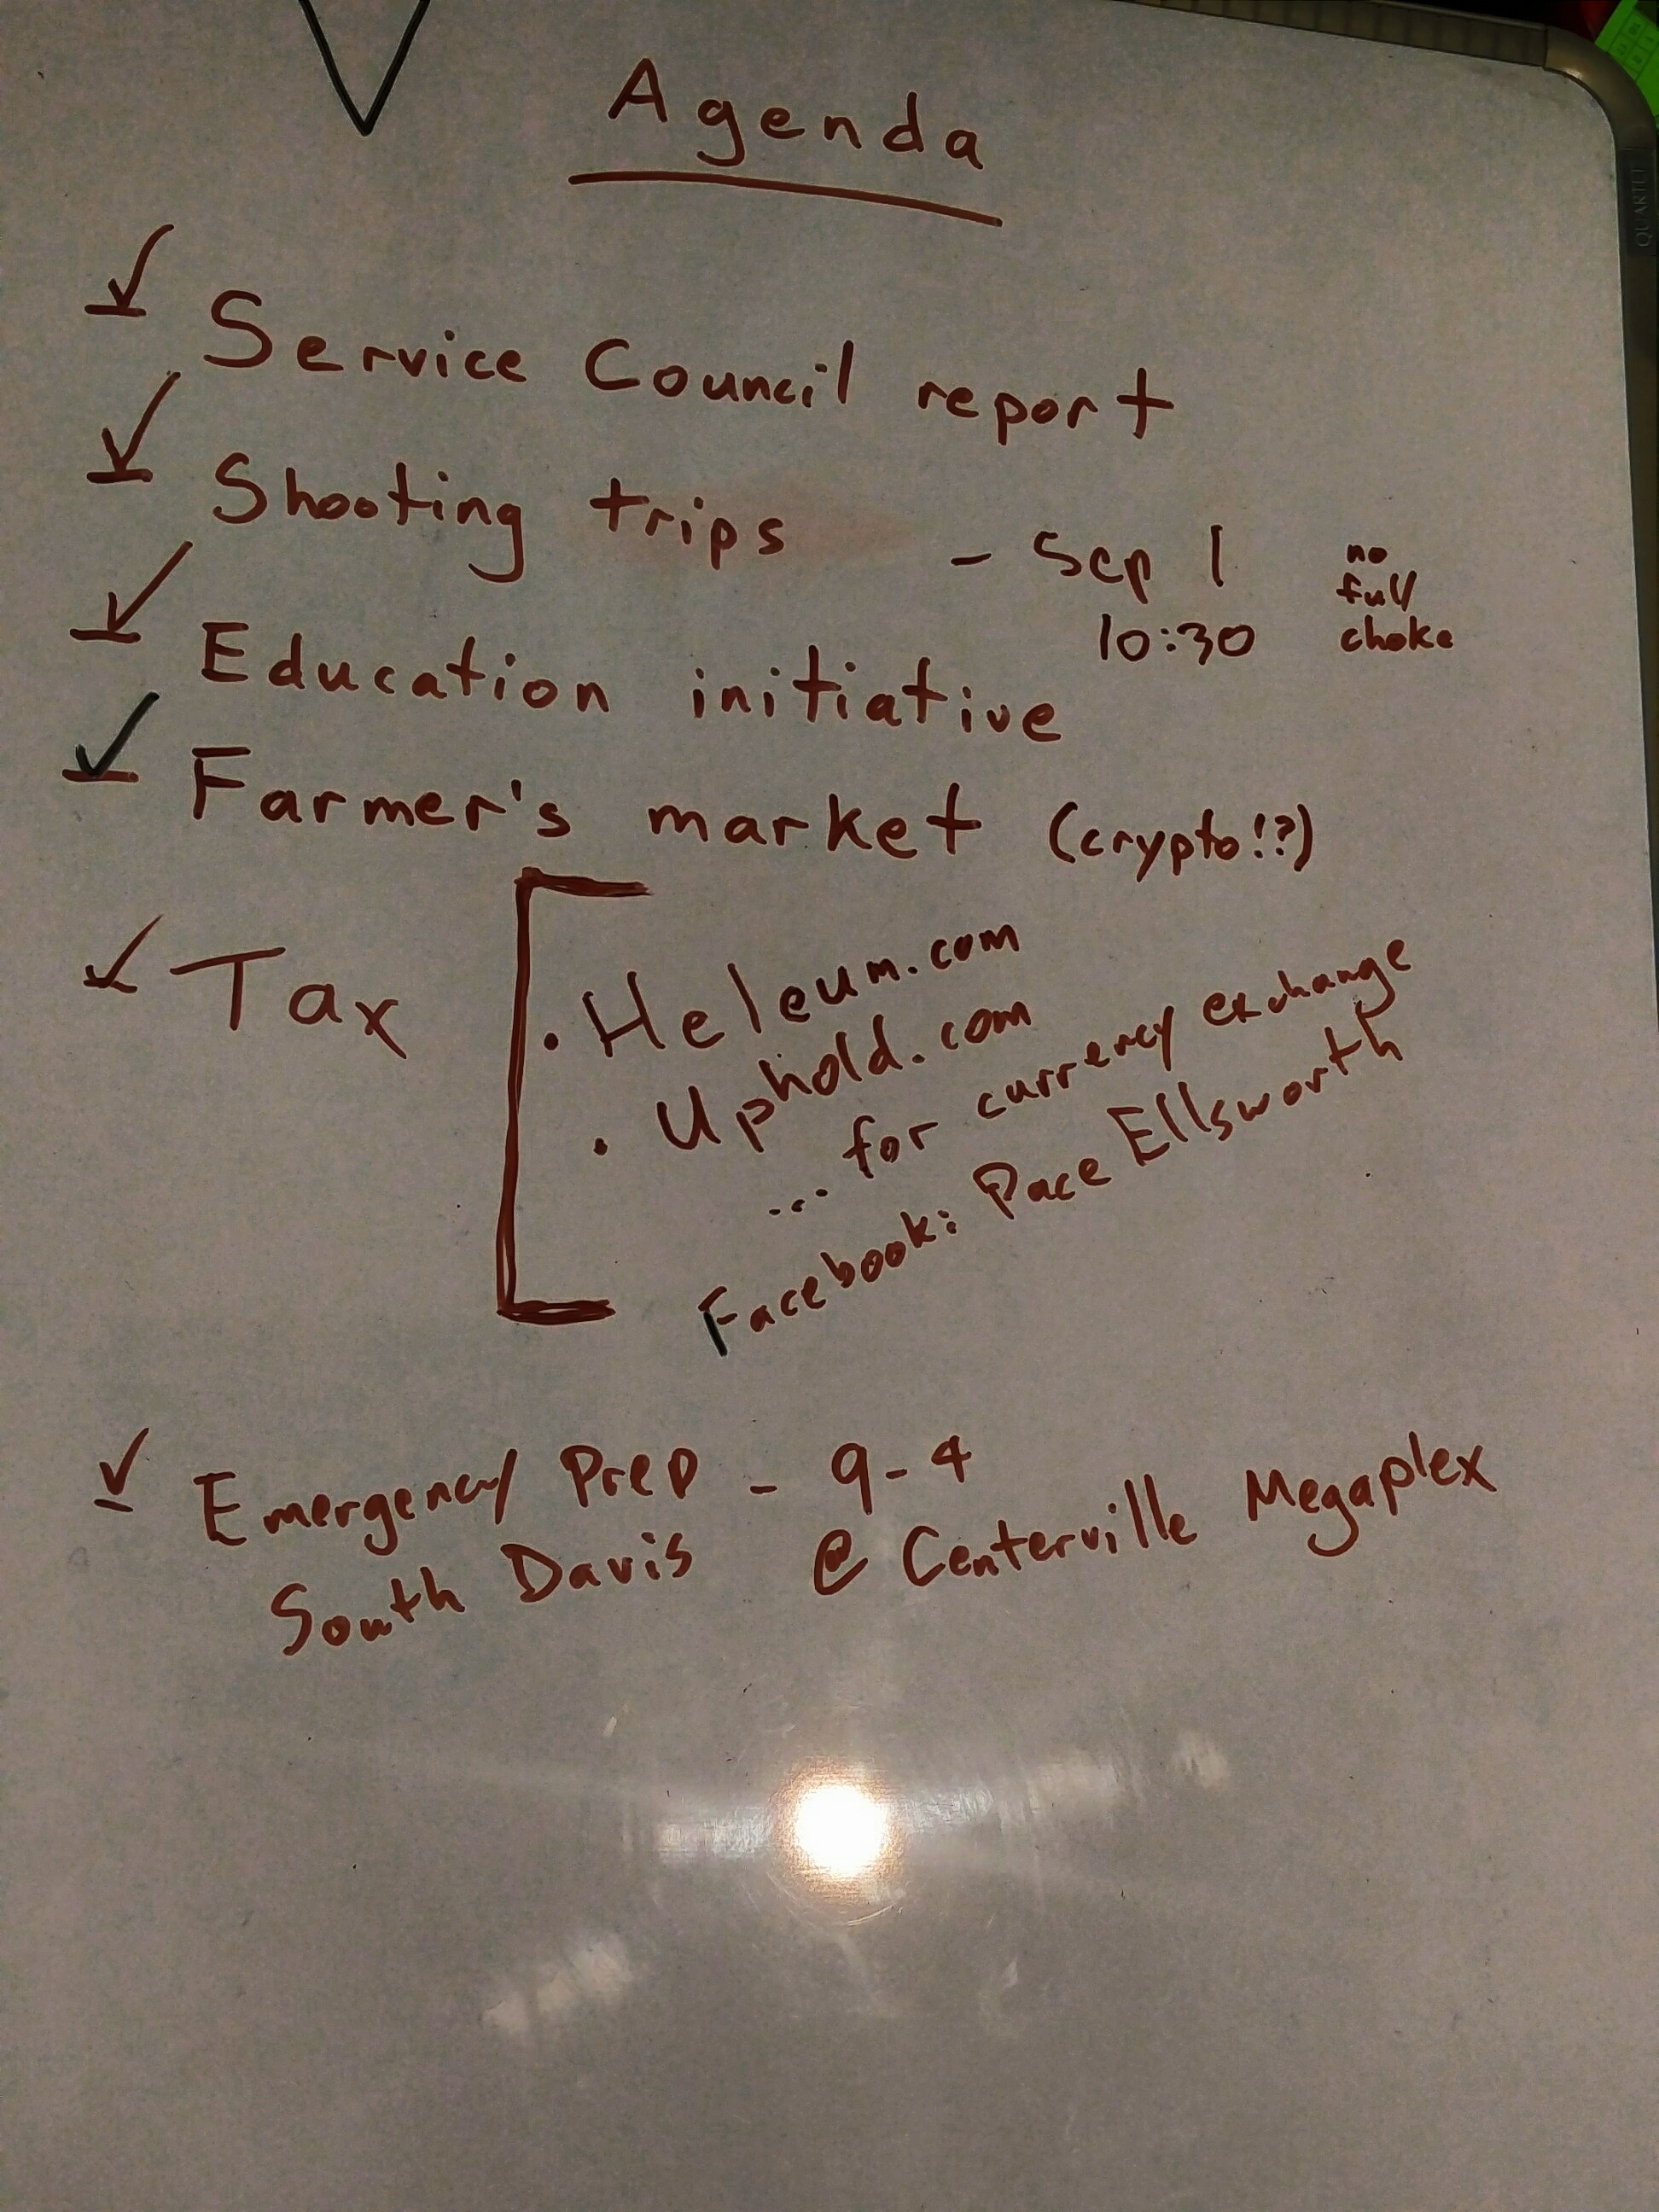 Agenda
Service Council report
Shooting trips - Sep 1
10:30
no
full
choke
Education initiative
Farmer's market (crypto!?)
Tax
• Heleum.com
• Uphold.com
... for currency exchange
Facebook: Pace Ellsworth
Emergency Prep - 9-4
South Davis @ Centerville Megaplex
QUARTET